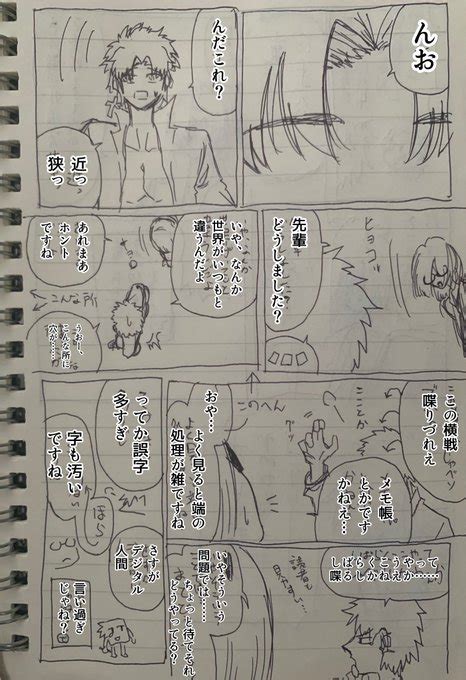 んお
んだこれ？
近っ
狭っ
ヒョコッ
先輩
どうしました？
□□□
いや、なんか
世界がいつもと
違うんだよ
あれまあ
ホント
ですね
こんな所
うおー、
こんな所に
穴が……
この横戦
喋りづれぇ
メモ帳
とかです
かねえ…
このへん
おや…
よく見ると端の
処理が雑ですね
ってか誤字
多すぎ
字も汚い
ですね
ほら
さすが
デジタル
人間
言い過ぎ
じゃね？
って
やか……
こうえ
くねぇ
らし
ばる
し喋
いやそういう
問題では……
ちょっと待てそれ
どうやってる？